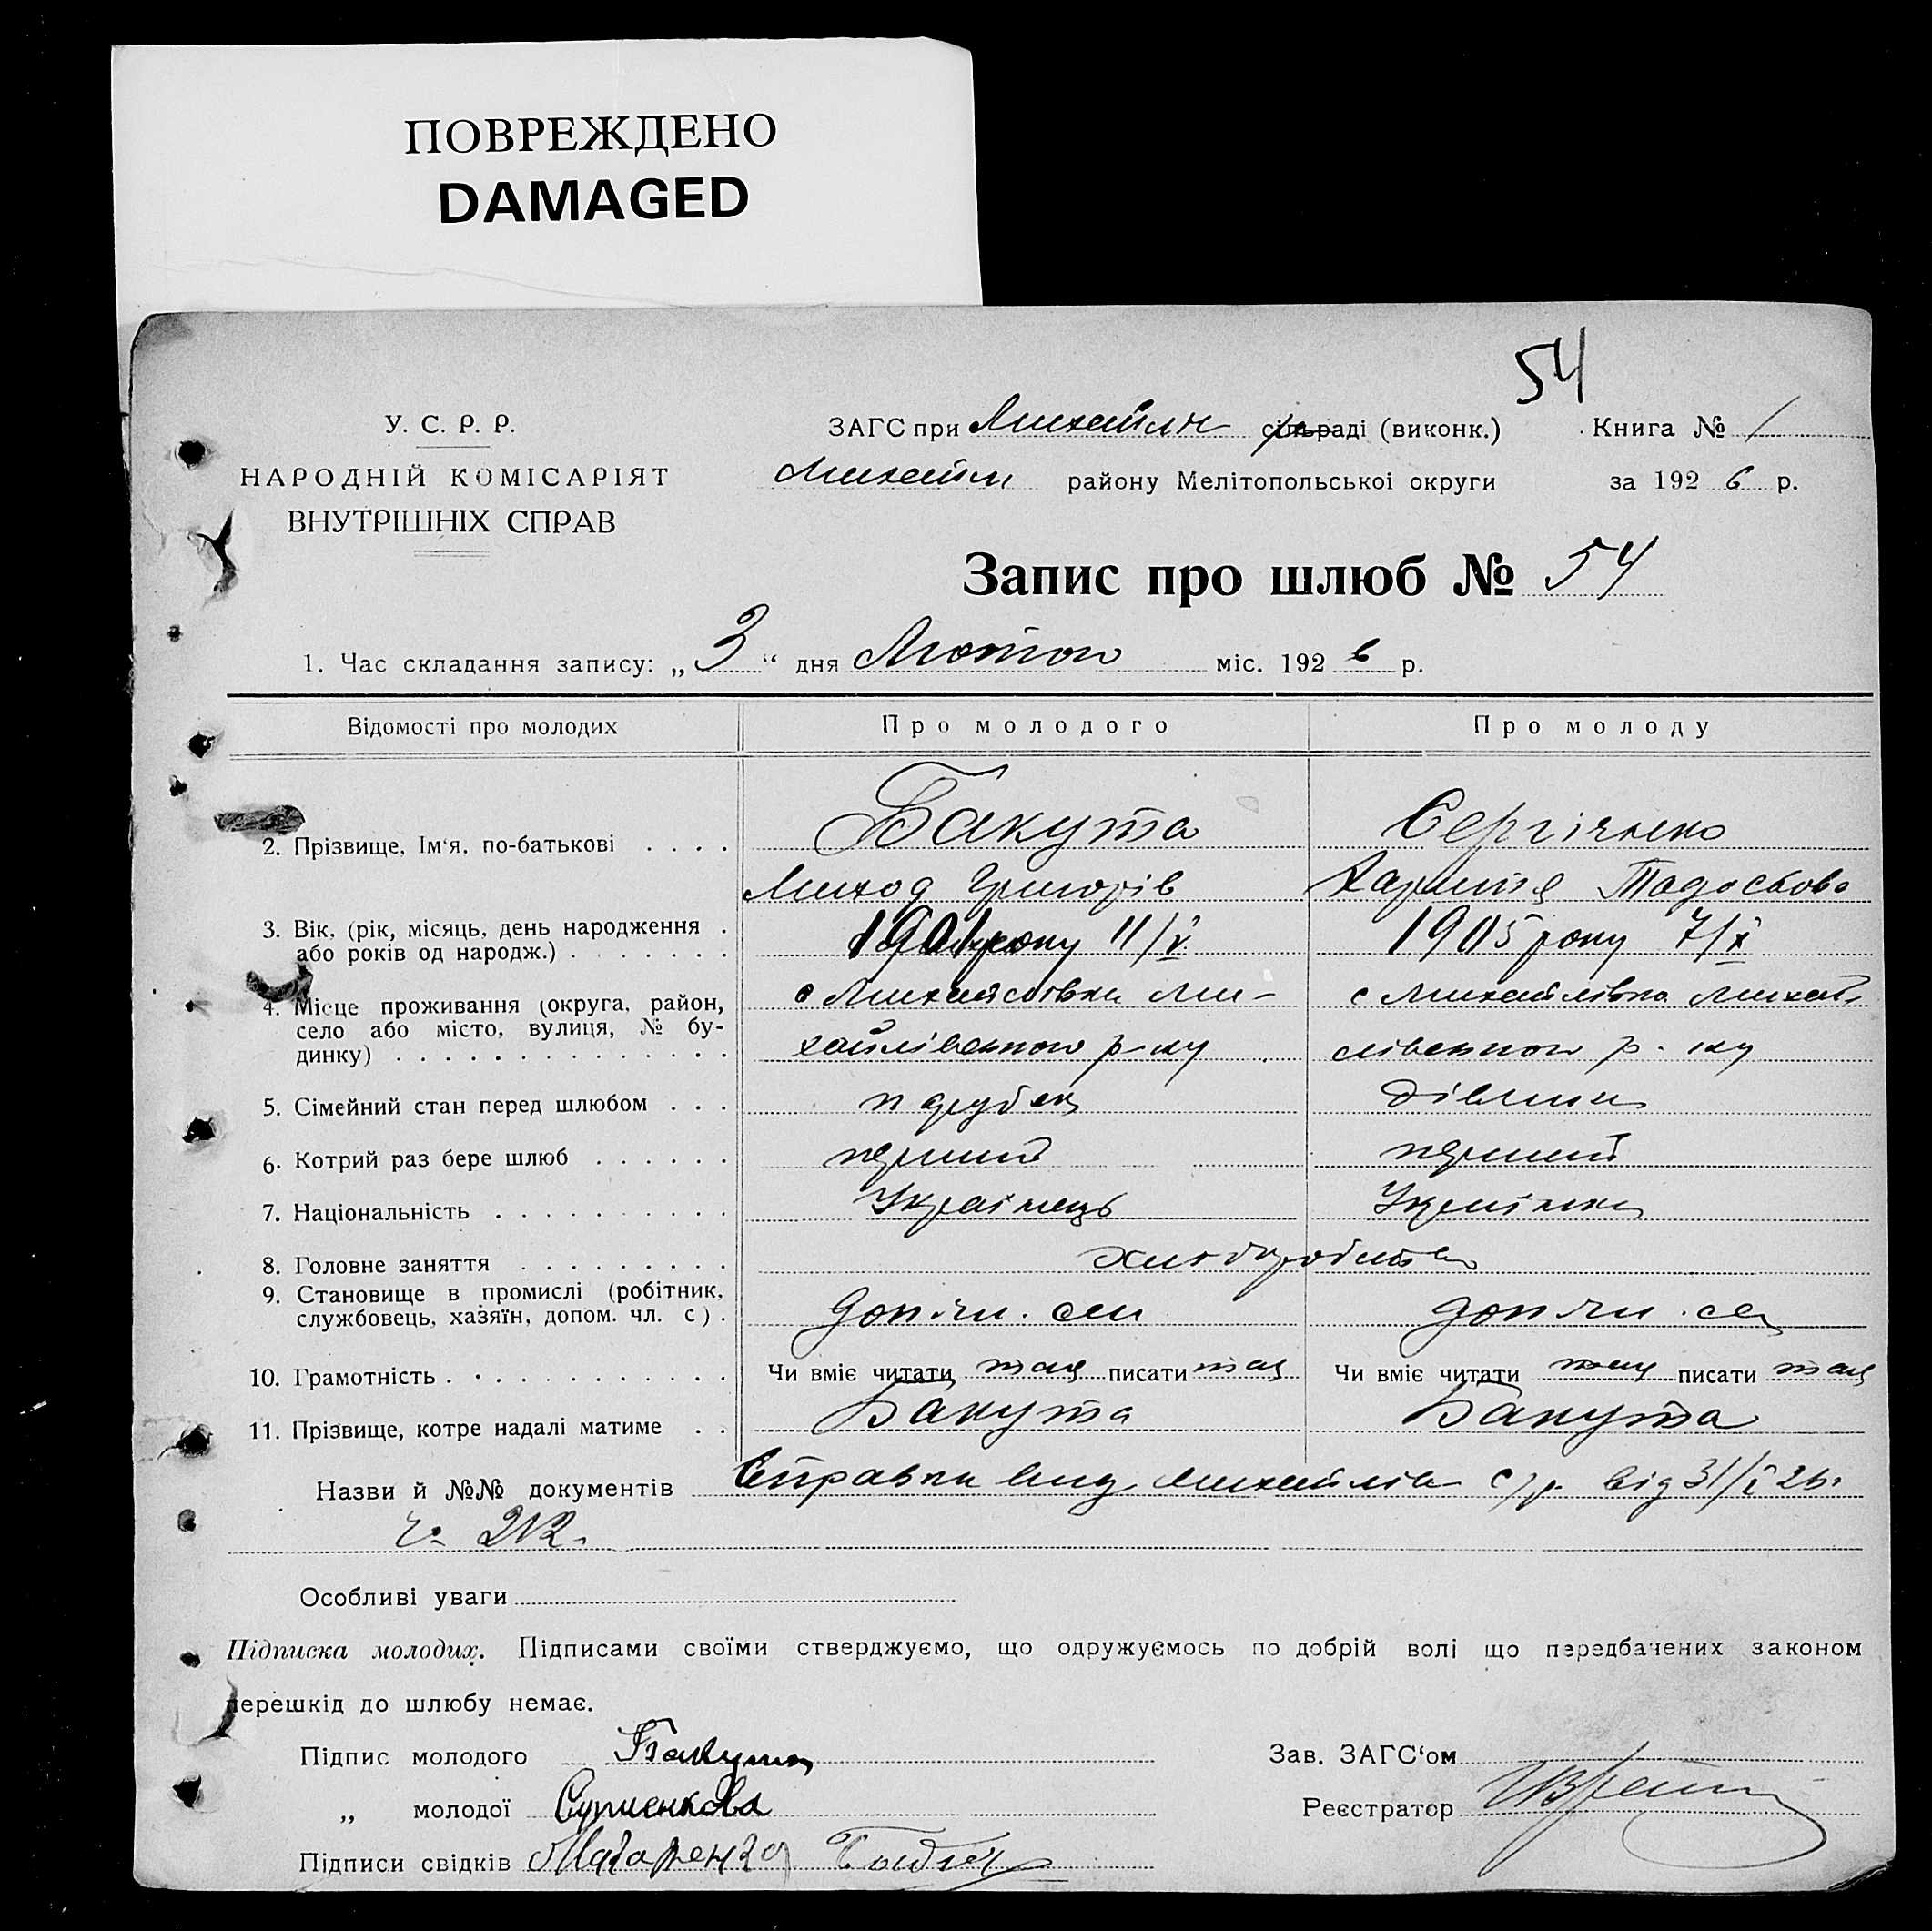 ПОВРЕЖДЕНО
DAMAGED
54
У. С. Р. Р.
НАРОДНІЙ КОМІСАРІЯТ
ВНУТРІШНІХ СПРАВ
ЗАГС при Михайлн сільраді (виконк.) Книга № 1
Михайл району Мелітопольської округи за 1926 р.
Запис про шлюб № 54
1. Час складання запису: „3“ дня Лютого міс. 1926 р.
Відомості про молодих Про молодого Про молоду
2. Прізвище, Ім'я, по-батькові Бакута Сергієнко
Григорів
3. Вік, (рік, місяць, день народження
або років од народж.) 1901 року 11/V 1905 року 7/X
4. Місце проживання (округа, район, с Михайлівки Ми- с Михайлівка Михай-
село або місто, вулиця, № бу-
динку) хайлівського р-ну лівського р-ну
5. Сімейний стан перед шлюбом парубок дівчина
6. Котрий раз бере шлюб перший перший
7. Національність Українець Українка
8. Головне заняття хліборобство
9. Становище в промислі (робітник,
службовець, хазяїн, допом. чл. с). доп. чл. сем доп чл. се
10. Грамотність Чи вміє читати так писати так Чи вміє читати так писати так
11. Прізвище, котре надалі матиме Бакута Бакута
Назви й №№ документів Справка вид. Михайлів с/р. від 31/I 26.
ч. 212.
Особливі уваги
Підписка молодих. Підписами своїми стверджуємо, що одружуємось по добрій волі що передбачених законом
перешкід до шлюбу немає.
Підпис молодого Бакута Зав. ЗАГС'ом
„ молодої Реєстратор
Підписи свідків